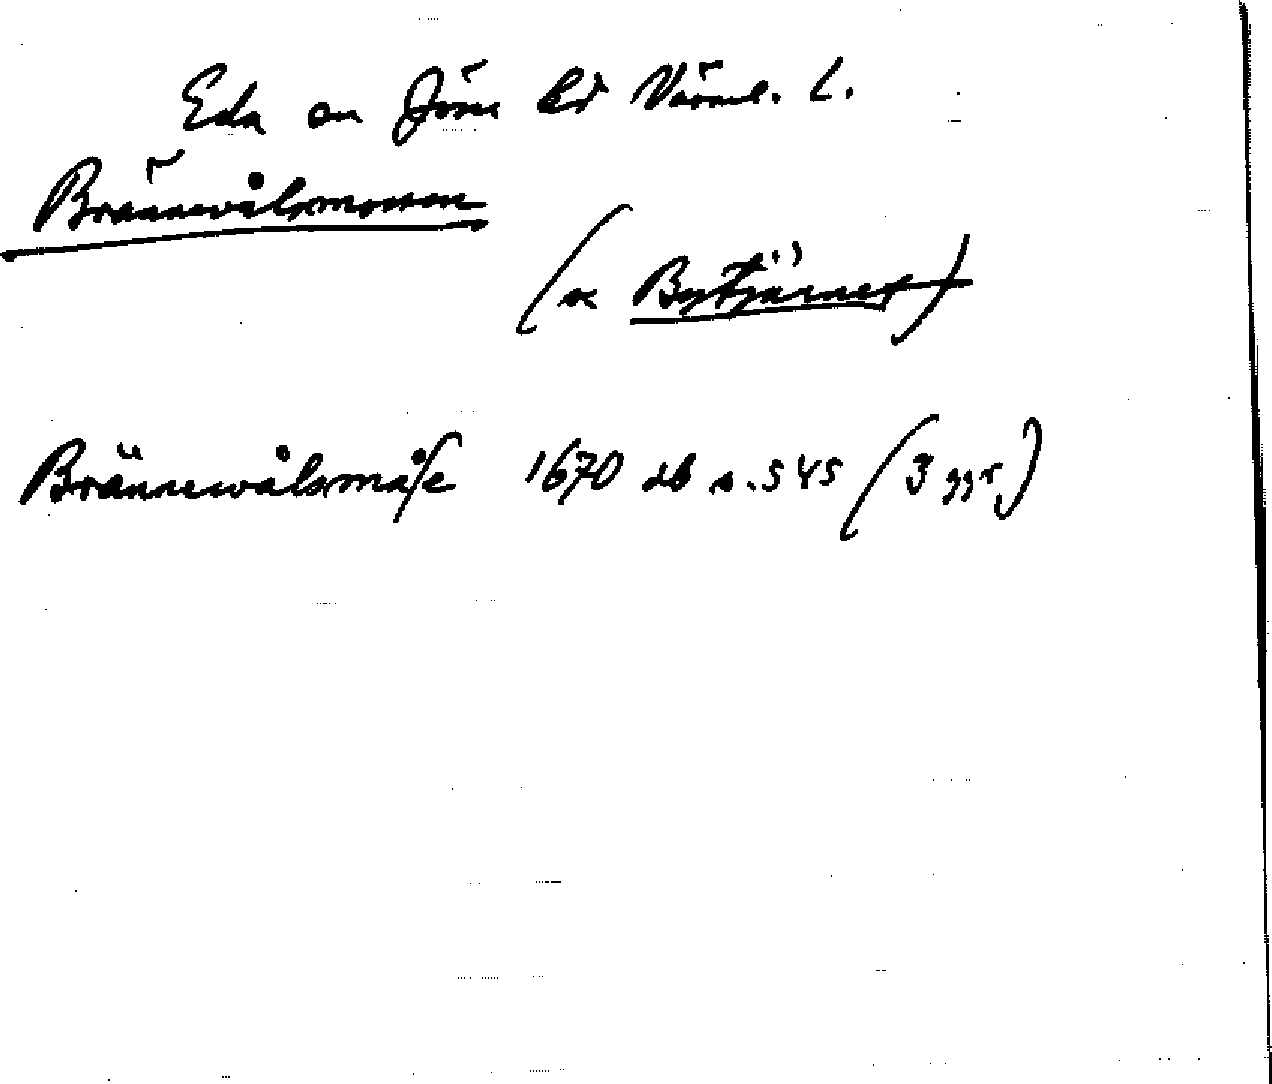 Eda sn Jösse hd Värml. l.
Brännevålsmossen
(x Bytjärnet)
Brännewålsmåse 1670 db s. 545 (3 ggr)